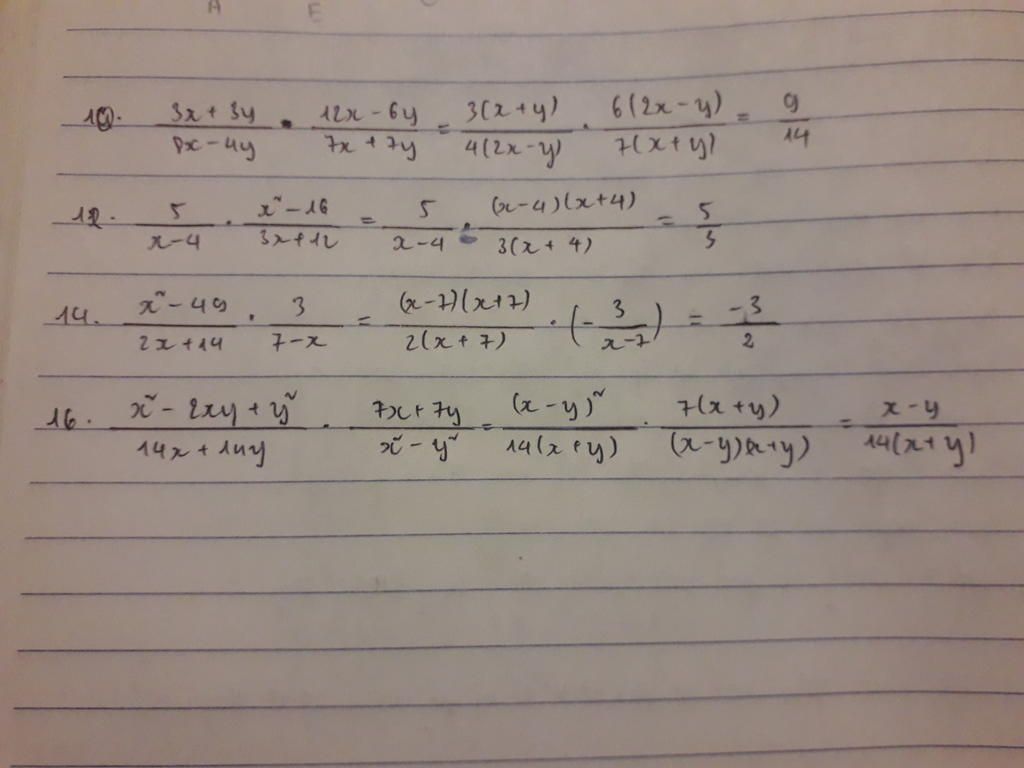 A E
10. (3x + 3y)/(8x - 4y) · (12x - 6y)/(7x + 7y) = 3(x + y)/4(2x - y) · 6(2x - y)/7(x + y) = 9/14
12. 5/(x - 4) · (x² - 16)/(3x + 12) = 5/(x - 4) · (x - 4)(x + 4)/3(x + 4) = 5/3
14. (x² - 49)/(2x + 14) · 3/(7 - x) = (x - 7)(x + 7)/2(x + 7) · (- 3/(x - 7)) = -3/2
16. (x² - 2xy + y²)/(14x + 14y) · (7x + 7y)/(x² - y²) = (x - y)²/14(x + y) · 7(x + y)/(x - y)(x + y) = (x - y)/14(x + y)